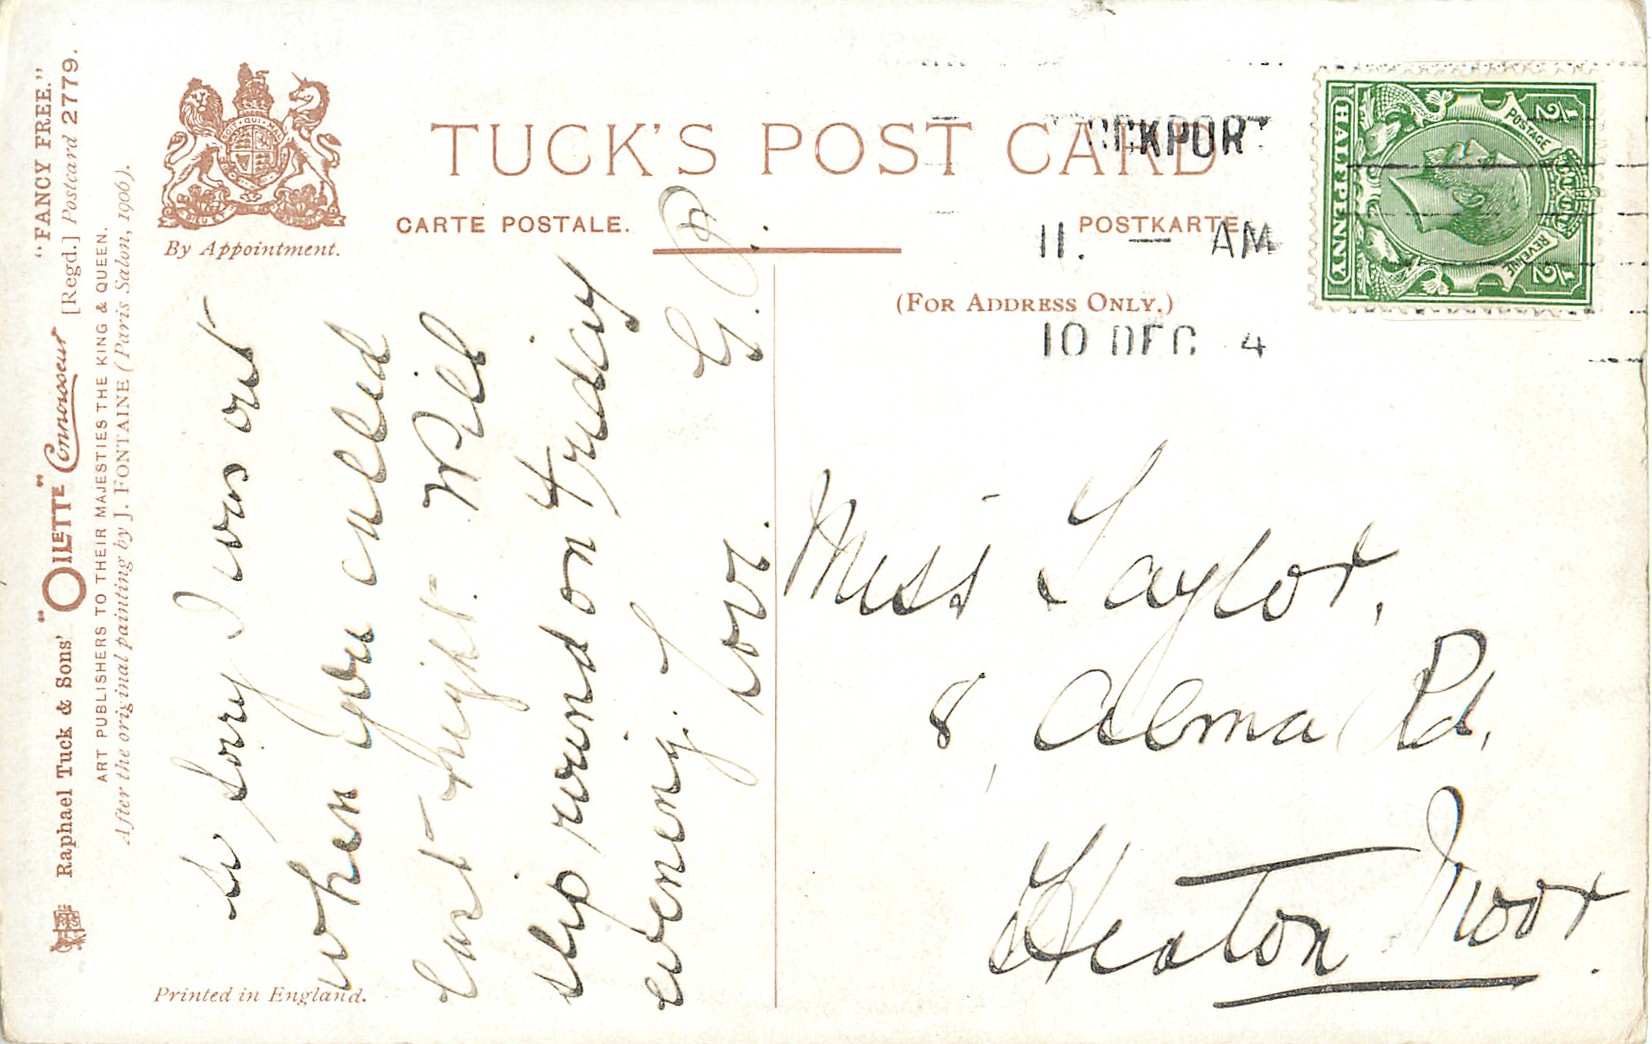 "FANCY FREE."
Raphael Tuck & Sons' "OILETTE" Connoisseur [Regd.] Postcard 2779.
ART PUBLISHERS TO THEIR MAJESTIES THE KING & QUEEN.
After the original painting by J. FONTAINE (Paris Salon, 1906).
By Appointment.
TUCK'S POST CARD
CARTE POSTALE.
POSTKARTE
(FOR ADDRESS ONLY.)
CKPORT
11. — AM
10 DEC 4
POSTAGE
REVENUE
HALFPENNY
1/2
1/2
So sorry I was out
when you called
last night. Will
slip round on Friday
evening.
Love.
G.
Miss Taylor,
8, Alma Rd,
Heaton Moor.
Printed in England.